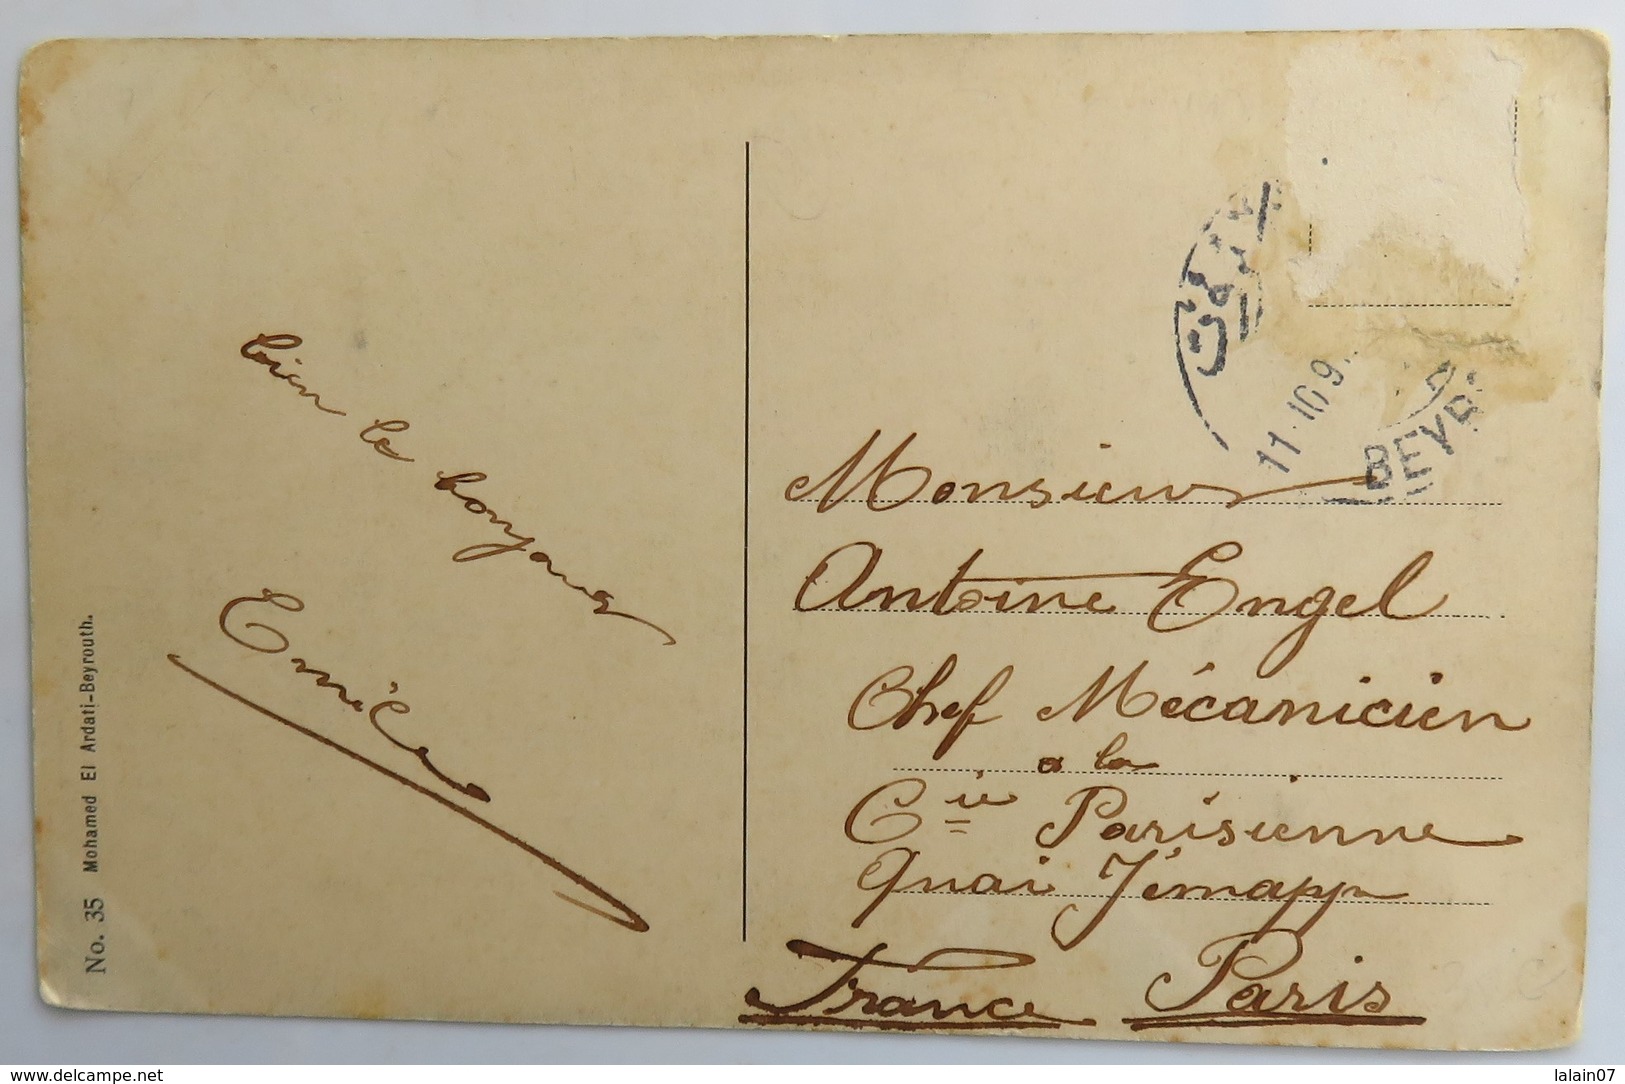 bien le bonjour
Emile
No. 35 Mohamed El Ardati-Beyrouth.
11 · 10 9
BEYR
Monsieur
Antoine Engel
Chef Mécanicien
a la
Cie Parisienne
Quai Jémapp
France Paris
www.delcampe.net
lalain07